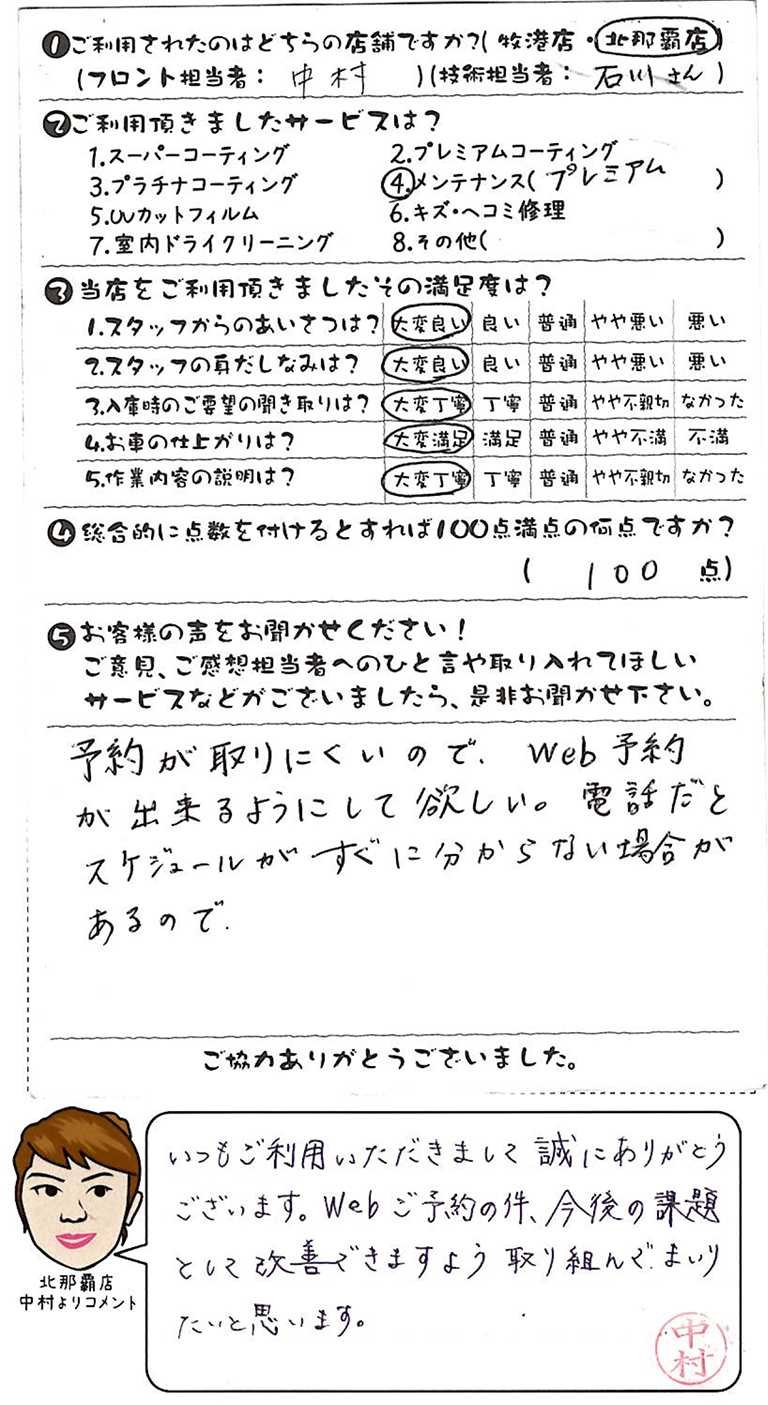 ❶ご利用されたのはどちらの店舗ですか?(牧港店・北那覇店)
(フロント担当者: 中村 )(技術担当者: 石川さん )
❷ご利用頂きましたサービスは?
1.スーパーコーティング 2.プレミアムコーティング
3.プラチナコーティング 4.メンテナンス(プレミアム )
5.UVカットフィルム 6.キズ・ヘコミ修理
7.室内ドライクリーニング 8.その他( )
❸当店をご利用頂きましたその満足度は?
1.スタッフからのあいさつは? 大変良い 良い 普通 やや悪い 悪い
2.スタッフの身だしなみは? 大変良い 良い 普通 やや悪い 悪い
3.入庫時のご要望の聞き取りは? 大変丁寧 丁寧 普通 やや不親切 なかった
4.お車の仕上がりは? 大変満足 満足 普通 やや不満 不満
5.作業内容の説明は? 大変丁寧 丁寧 普通 やや不親切 なかった
❹総合的に点数を付けるとすれば100点満点の何点ですか?
( 100 点)
❺お客様の声をお聞かせください!
ご意見、ご感想担当者へのひと言や取り入れてほしい
サービスなどがございましたら、是非お聞かせ下さい。
予約が取りにくいので、Web予約
が出来るようにして欲しい。電話だと
スケジュールがすぐに分からない場合が
あるので.
ご協力ありがとうございました。
いつもご利用いただきまして誠にありがとう
ございます。Webご予約の件、今後の課題
として改善できますよう取り組んでまいり
たいと思います。
北那覇店
中村よりコメント
中村